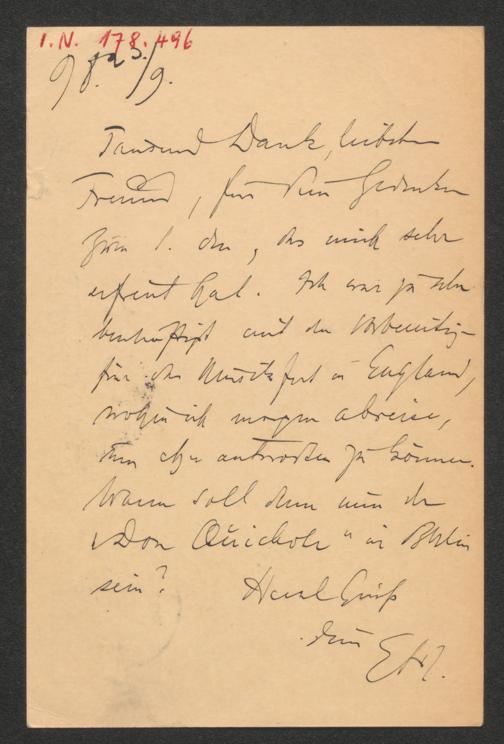 I.N. 178.496
98. 23./9.
Tausend Dank, liebster
Freund, für Dein Gedenken
zum 1. den, das mich sehr
erfreut hat. Ich war zu sehr
beschäftigt mit den Vorbereitg
für das Musikfest in England,
wohin ich morgen abreise,
um eher antworten zu können.
Wann soll denn nun der
"Don Quichote" in Berlin
sein? Herzl Gruß
Dein